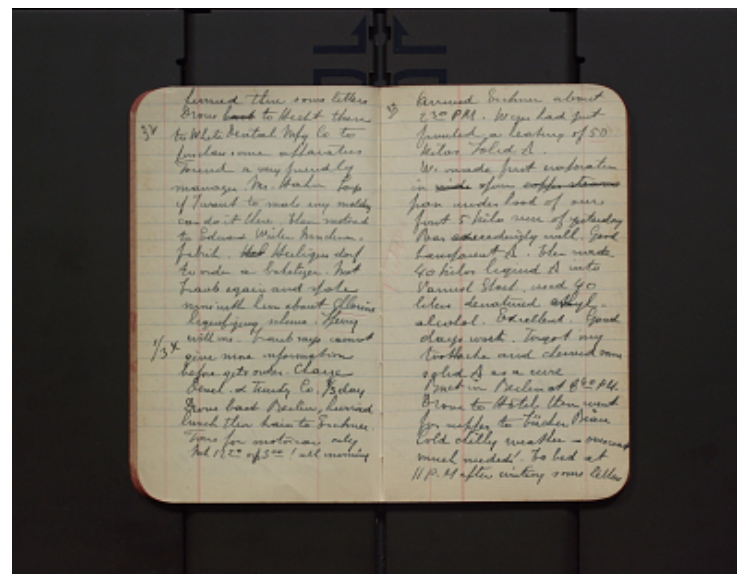 32
finished there some letters
Drove back to Hecht then
to White Dental Mfg Co to
purchase some apparatus
Found a very friendly
manager. Mr. Hahn Says
if I want to make any molds
can do it there. Then instead
to Edward Maschinen
fabrik. Heiligendorf
to order a Not
Traub again and spoke
with him about Chlorine
liquefying scheme. Henry
1/3 x with me. Traub says cannot
give more information
before gets order. Charge
Devel. & Trusty Co. 1/3 day
Drove back Berlin, hurried
lunch then train to Erkner.
Taxi for motorcar only
Mk 12.20 of 3.00! all morning
33
Arrived Erkner about
2 30 PM. Weger had just
finished a heating of 50
kilos Solid A
We made first evaporation
in open
pan under hood of our
first 5 kilo run of yesterday
Pours exceedingly well. Good
transparent A. Then made
40 kilos liquid A into
Varnish Stock, used 40
liters denatured ethyl-
alcohol. Excellent. Good
days work. Forgot my
toothache and chewed some
solid A as a cure
Back in Berlin at 8 00 P.M.
Drove to Hotel then went
for supper to Tucher Bräu
Cold chilly weather – overcoat
much needed! To bed at
11 P.M after writing some letters